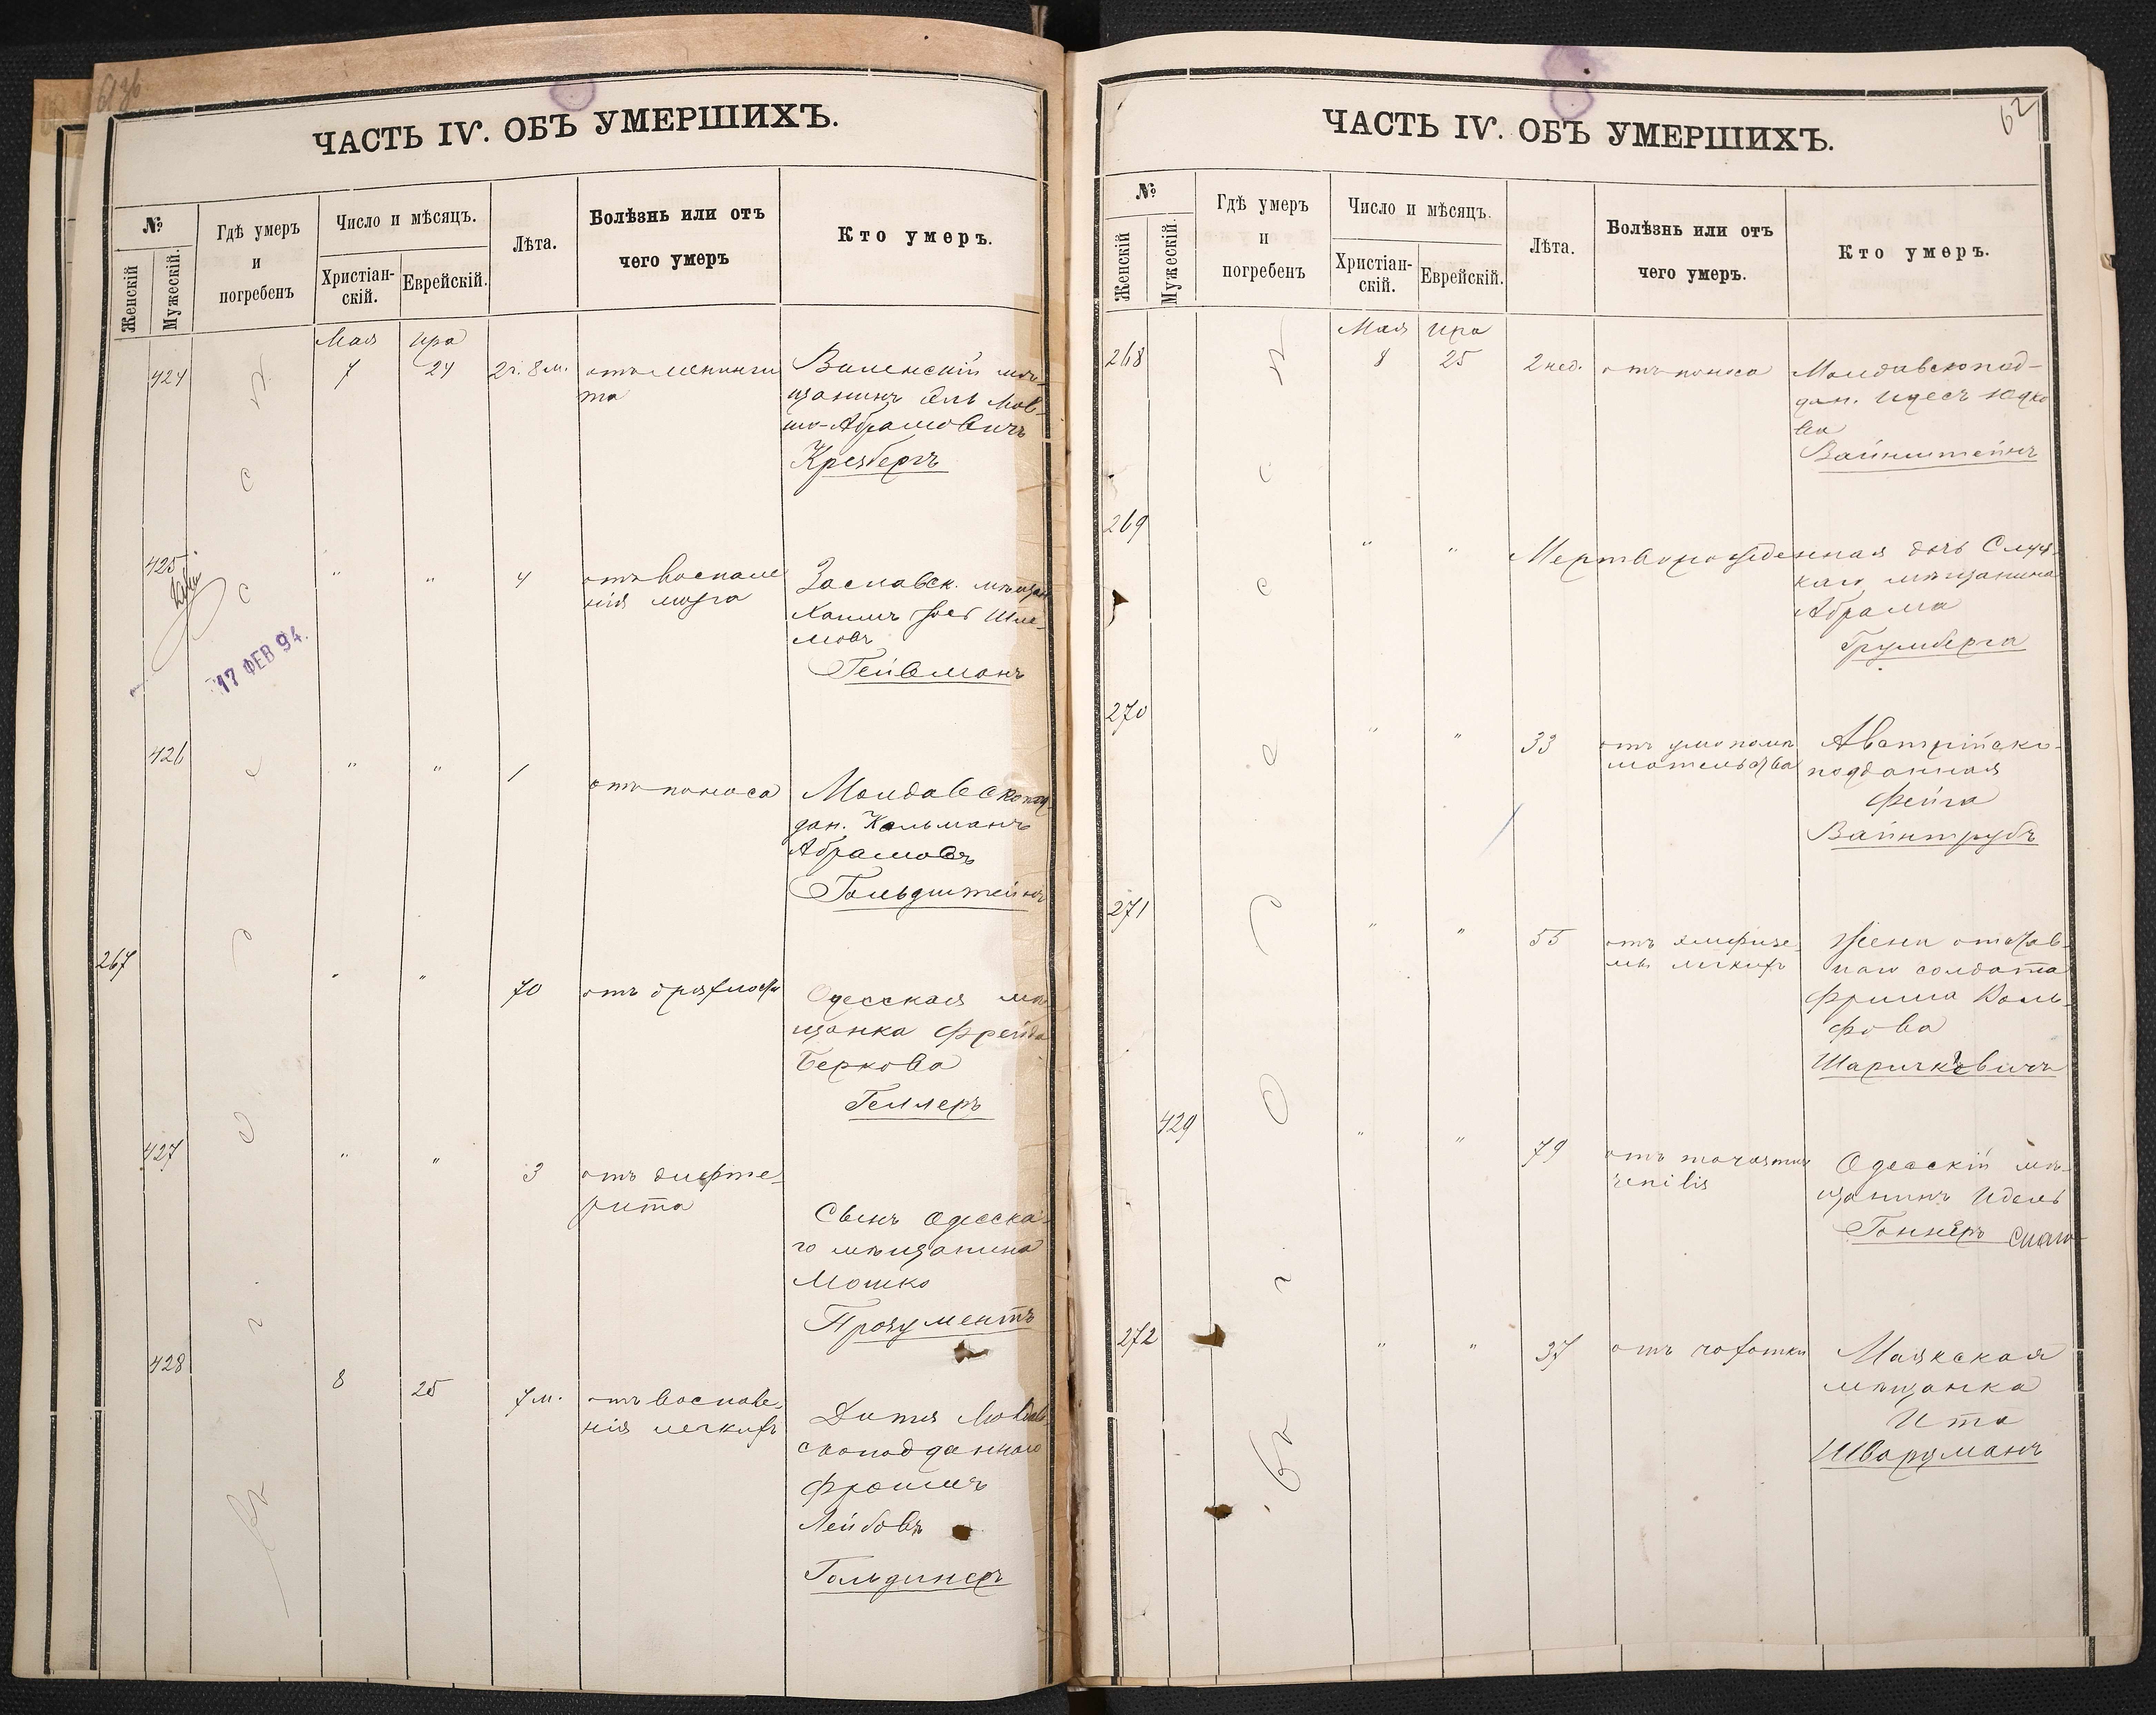 ЧАСТЬ IV. ОБЪ УМЕРШИХЪ.
№
Женскій
Мужескій.
Гдѣ умеръ
и
погребенъ
Число и мѣсяцъ.
Христіан-
скій.
Еврейскій.
Лѣта.
Болѣзнь или отъ
чего умеръ
Кто умеръ.
Мая Ира
424
7
24
2 г. 8 м.
отъ менинги
та
Виленскій мѣ-
щанинъ
Абрамовичъ
Крезбергъ
425
"
"
4
отъ воспале
нія мозга
Заславск. мѣщан
Хаимъ Зосъ Шле-
мовъ
Гейвманъ
17 ФЕВ 94.
426
"
"
1
отъ поноса
Молдавскопод-
дан. Кельманъ
Абрамовъ
Гольдштейнъ
267
"
"
70
отъ дряхлости
Одесская мѣ-
щанка Фрейда
Беркова
Геллеръ
427
"
"
3
отъ дифте-
рита
Сынъ Одесска-
го мѣщанина
Мошко
Прозументъ
428
8
25
7 м.
отъ воспале-
нія легкихъ
Дитя Молдав-
скоподданнаго
Фроимъ
Лейбовъ
Гольдинеръ
62
ЧАСТЬ IV. ОБЪ УМЕРШИХЪ.
№
Женскій
Мужескій.
Гдѣ умеръ
и
погребенъ
Число и мѣсяцъ.
Христіан-
скій.
Еврейскій.
Лѣта.
Болѣзнь или отъ
чего умеръ.
Кто умеръ.
Мая Ира
268
8
25
2 нед.
отъ поноса
Молдавскопод-
дан. Идесъ Юдко
ва
Вайнштейнъ
269
"
"
Мертворожденная дочь Слуц-
каго мѣщанина
Абрама
Грумберга
270
"
"
33
отъ умопомѣ
шательства
Австрійско-
подданная
Фейга
Вайнтрубъ
271
"
"
55
отъ эмфизе-
мы легкихъ
Жена отстав-
наго солдата
Фрима Воль-
фова
Шаричкевичъ
429
"
"
79
отъ
senilis
Одесскій мѣ-
щанинъ Идель
Гоннеръ
272
"
"
37
отъ чахотки
Маякская
мѣщанка
Ита
Шварцманъ